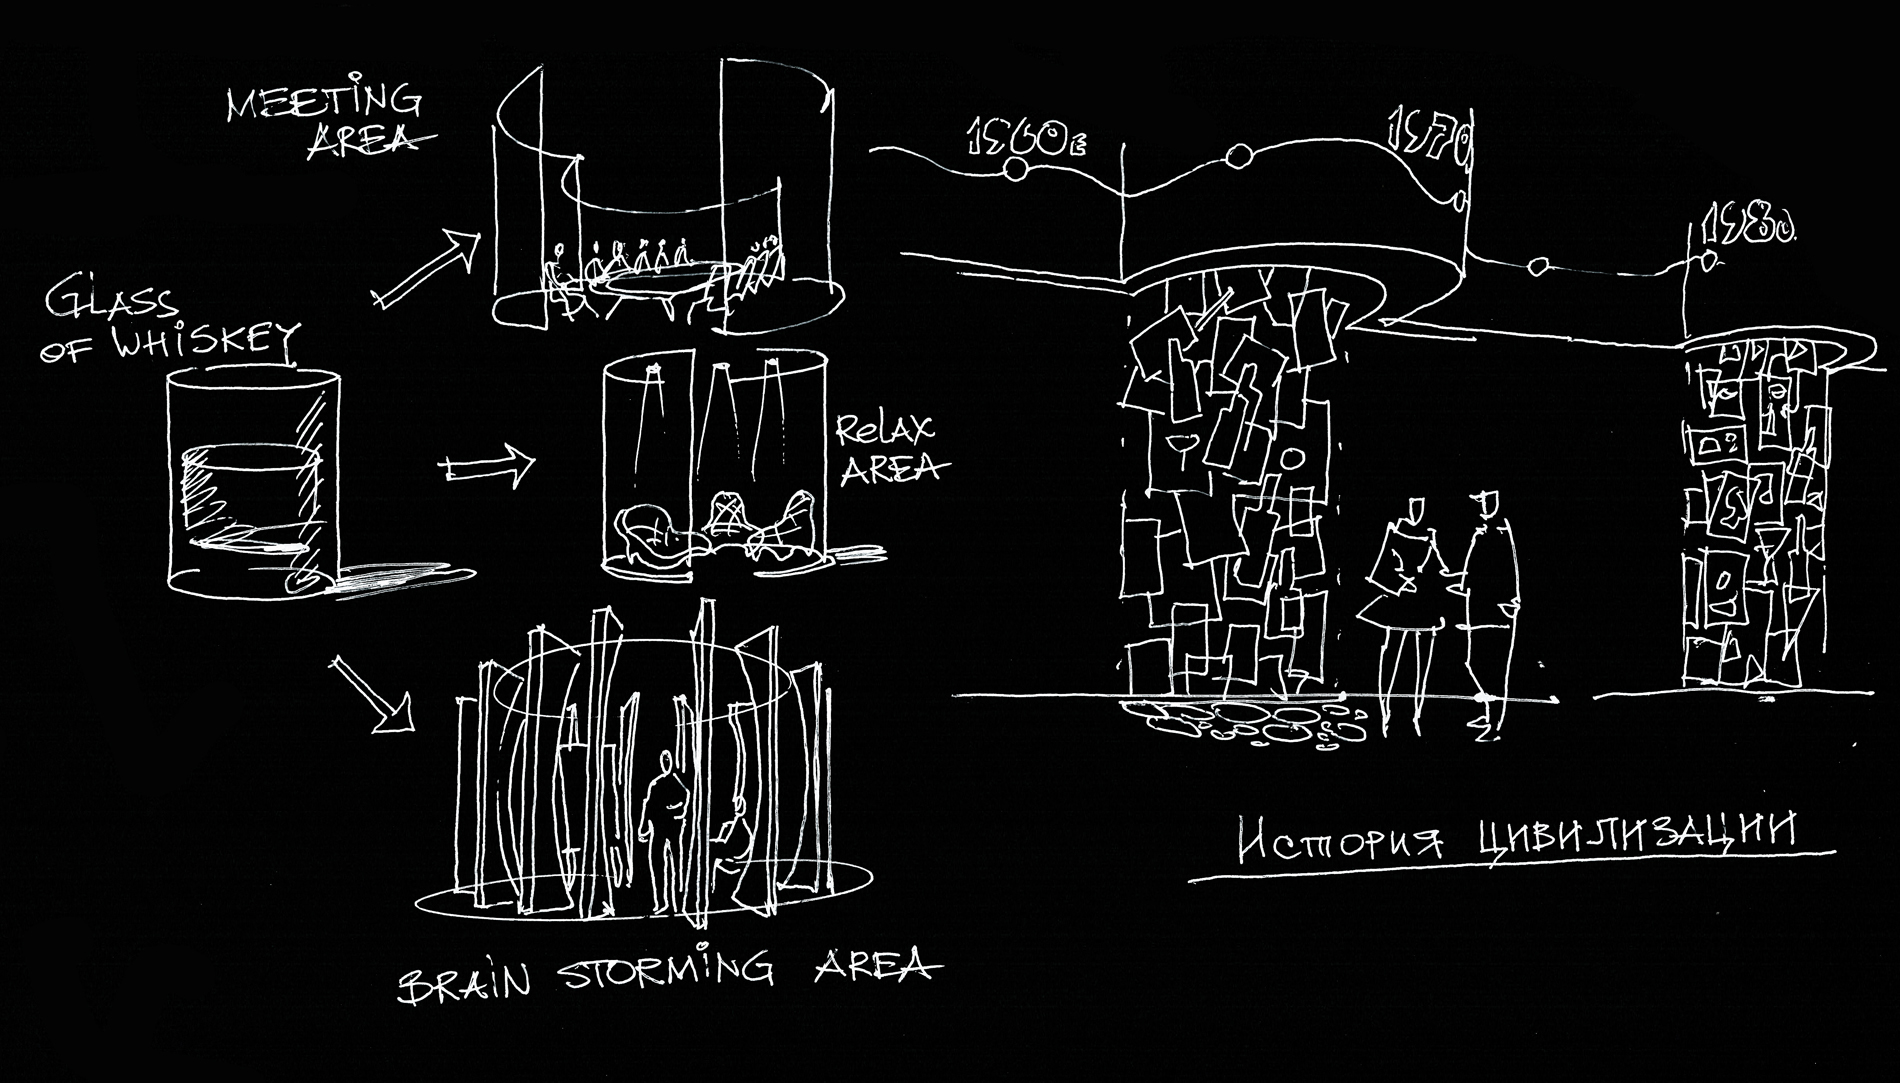 MEETING
AREA
GLASS
OF WHISKEY
RELAX
AREA
BRAIN STORMING AREA
1960е
1970
1980
История цивилизации